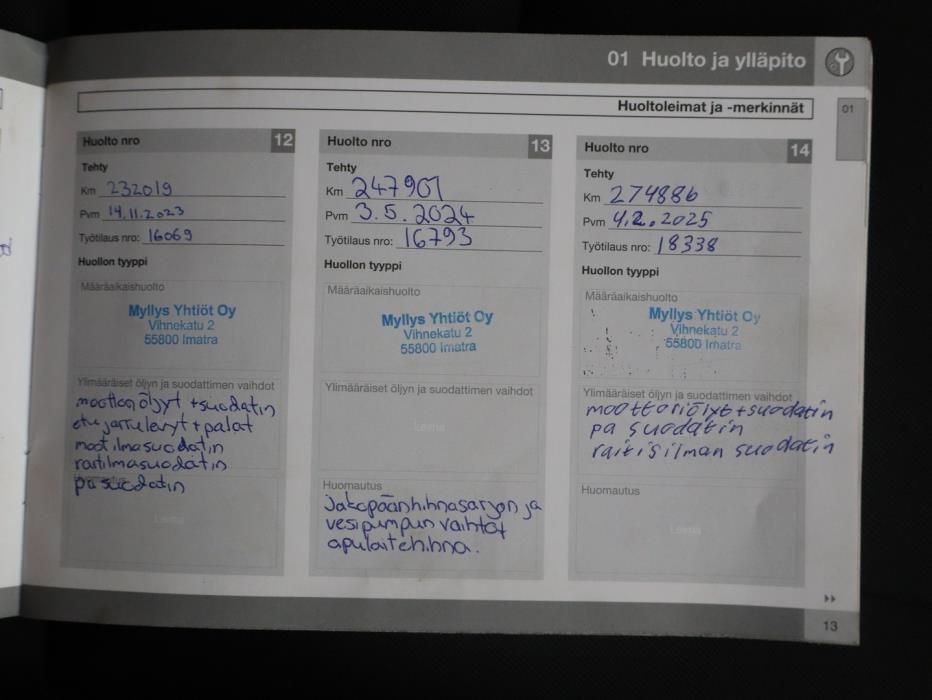 01 Huolto ja ylläpito
Huoltoleimat ja -merkinnät
01
Huolto nro 12
Tehty
Km 232019
Pvm 14.11.2023
Työtilaus nro: 16069
Huollon tyyppi
Määräaikaishuolto
Myllys Yhtiöt Oy
Vihnekatu 2
55800 Imatra
Ylimääräiset öljyn ja suodattimen vaihdot
moottoriöljyt + suodatin
etujarrulevyt + palat
moot ilmasuodatin
raitilmasuodatin
pa suodatin
Leima
Huolto nro 13
Tehty
Km 247901
Pvm 3.5.2024
Työtilaus nro: 16793
Huollon tyyppi
Määräaikaishuolto
Myllys Yhtiöt Oy
Vihnekatu 2
55800 Imatra
Ylimääräiset öljyn ja suodattimen vaihdot
Leima
Huomautus
Jakopäänhihnasarjan ja
vesipumpun vaihdot
apulaitehihna.
Huolto nro 14
Tehty
Km 274886
Pvm 4.2.2025
Työtilaus nro: 18338
Huollon tyyppi
Määräaikaishuolto
Myllys Yhtiöt Oy
Vihnekatu 2
55800 Imatra
Ylimääräiset öljyn ja suodattimen vaihdot
moottoriöljyt + suodatin
pa suodatin
raitisilman suodatin
Huomautus
Leima
13